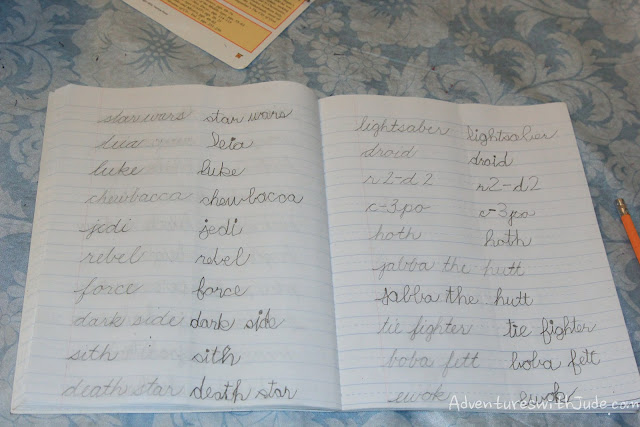 star wars star wars
leia leia
luke luke
chewbacca chewbacca
jedi jedi
rebel rebel
force force
dark side dark side
sith sith
death star death star
lightsaber lightsaber
droid droid
r2-d2 r2-d2
c-3po c-3po
hoth hoth
jabba the hutt
jabba the hutt
tie fighter tie fighter
boba fett boba fett
ewok ewok
AdventureswithJude.com